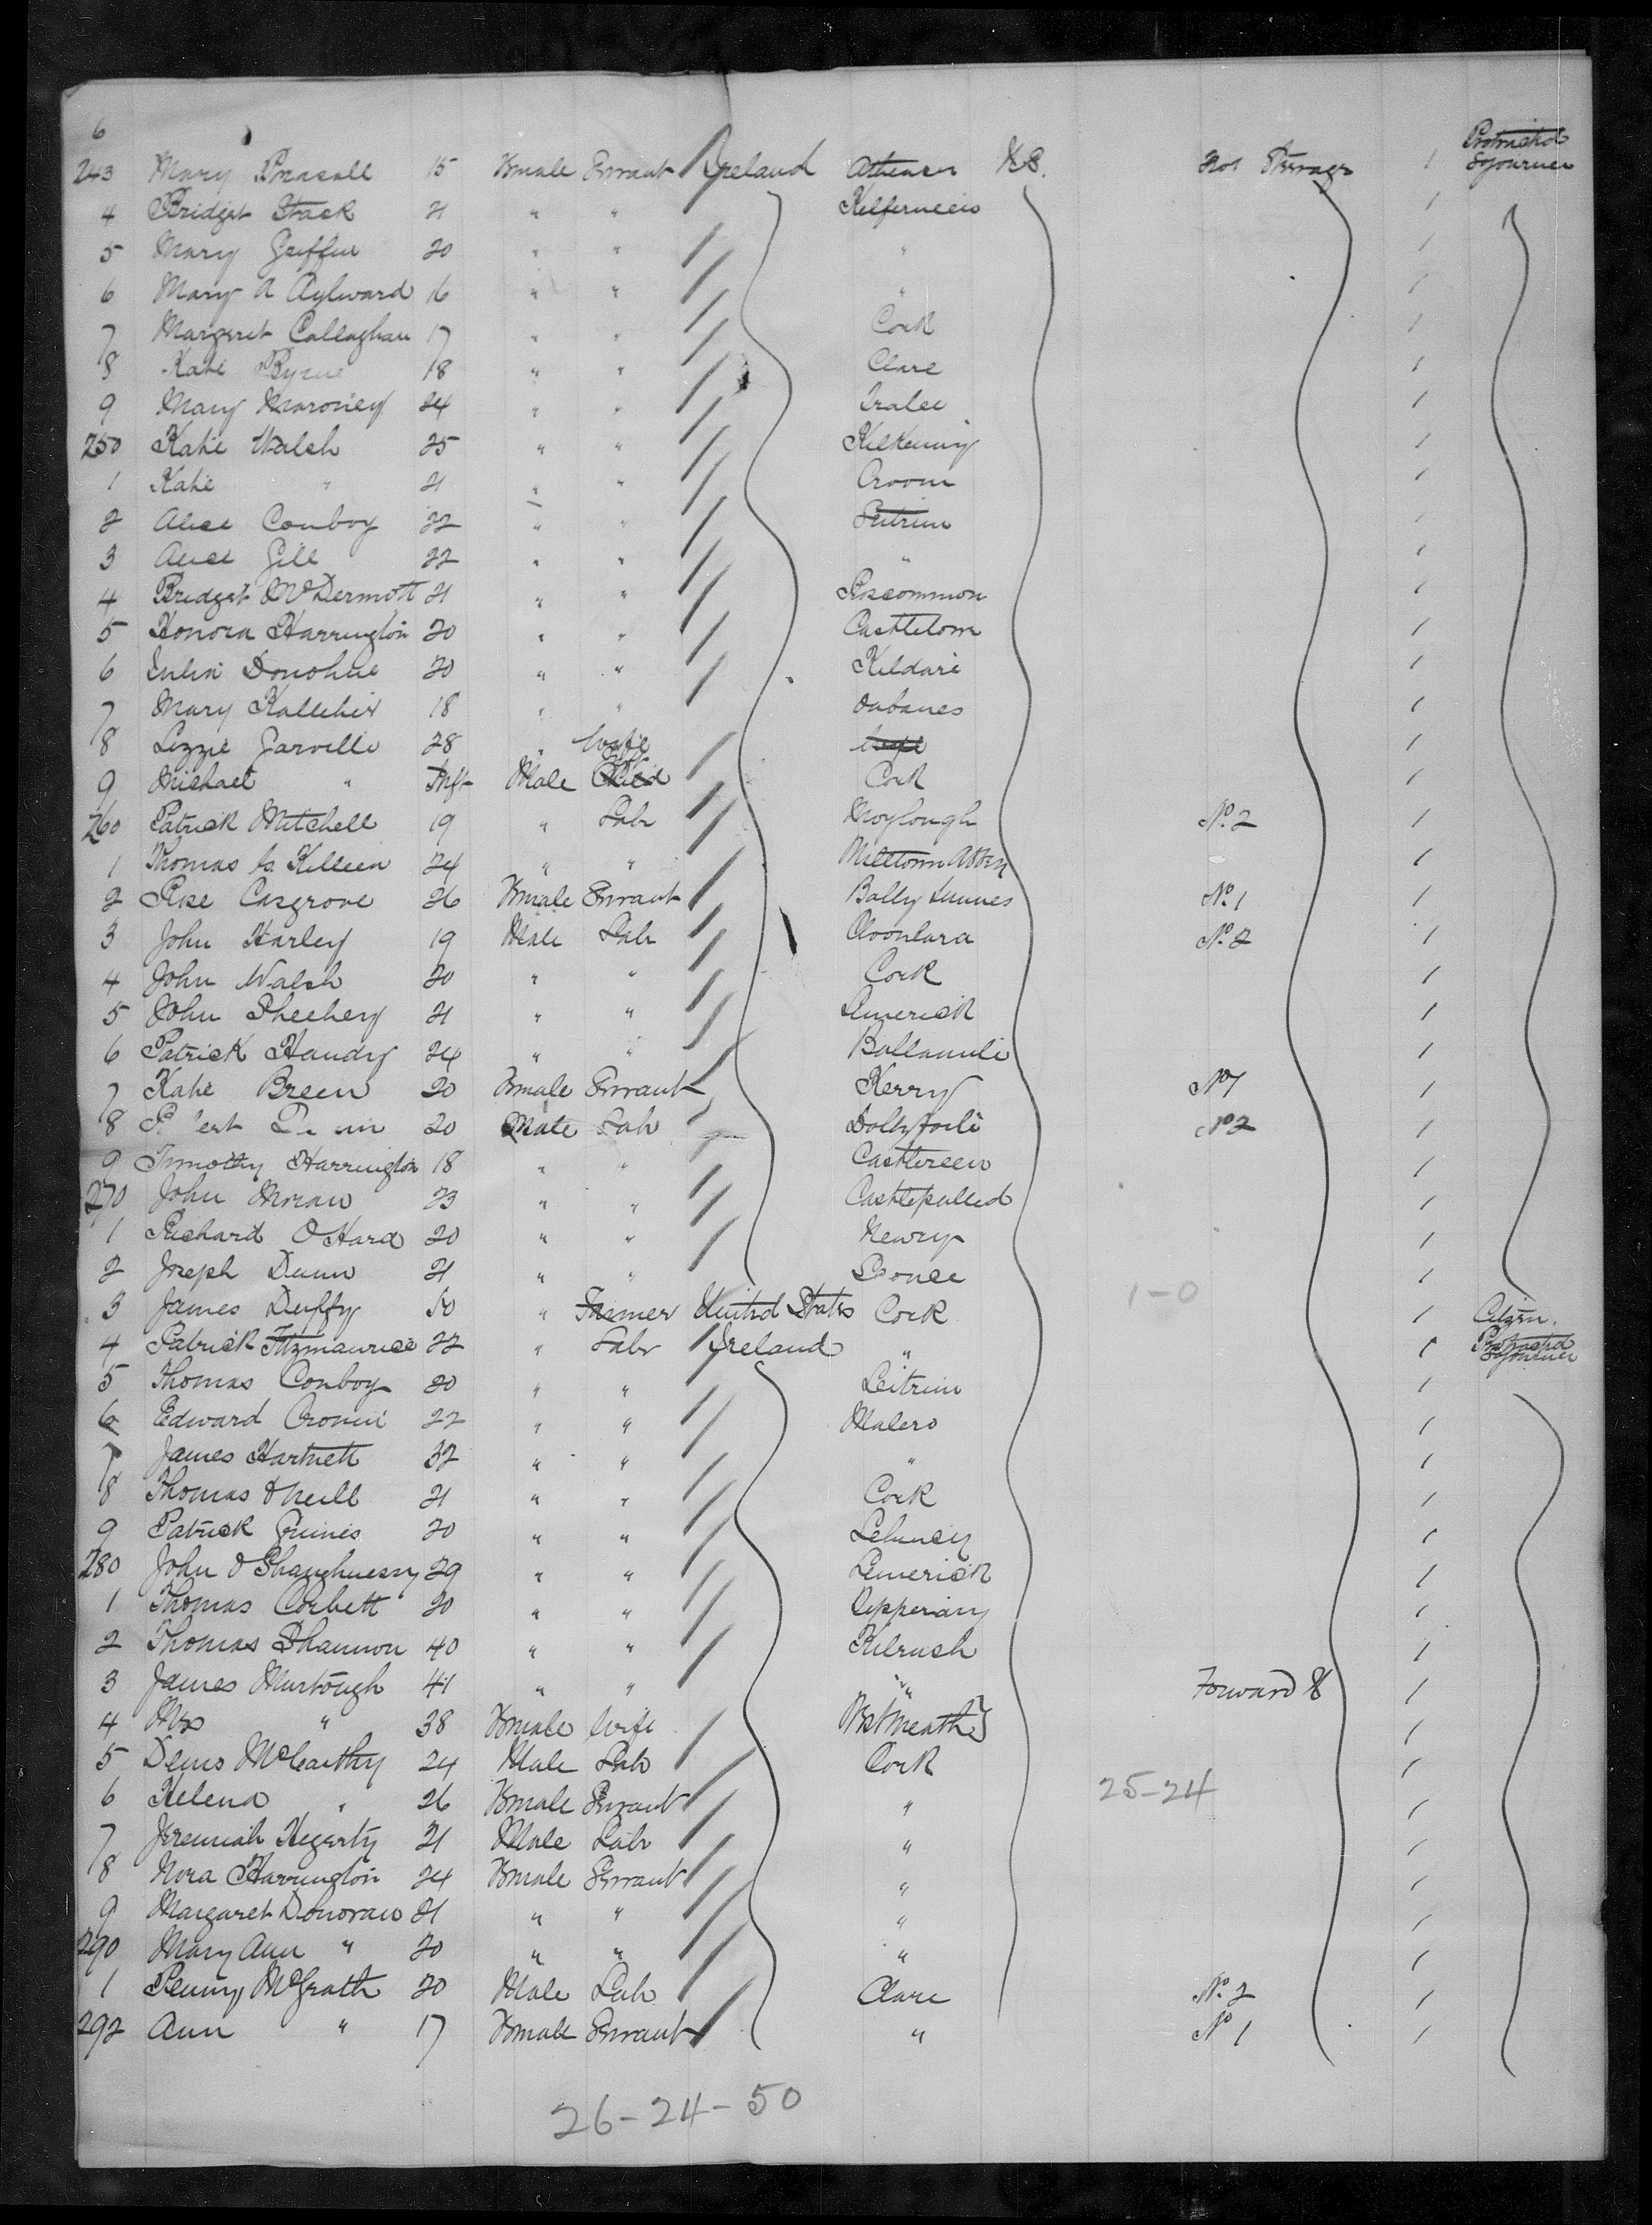 6
243 Mary 15 Female Servant Ireland Athenry U.S. No 1 Steerage 1 Protracted Sojourner
4 Bridget Stack 21 " " 1
5 Mary Griffin 20 " " " 1
6 Mary A Aylward 16 " " " 1
7 Margaret Callaghan 17 " " Cork 1
8 Kate Byrne 18 " " Clare 1
9 Mary Maroney 24 " " Tralee 1
250 Katie Walsh 25 " " Kilkenny 1
1 Katie " 21 " " Croom 1
2 Alice Conboy 22 " " Leitrim 1
3 Alice Gill 22 " " " 1
4 Bridget McDermott 21 " " Roscommon 1
5 Honora Harrington 20 " " Castletown 1
6 Julia Donohue 20 " " Kildare 1
7 Mary Kelleher 18 " " 1
8 Lizzie Garville 28 " Wife 1
9 Michael " Inft Male Child Cork 1
260 Patrick Mitchell 19 " Labr Moylough No. 2 1
1 Thomas Killeen 24 " " Milltown 1
2 Rose Casgrove 26 Female Servant No 1 1
3 John Harley 19 Male Labr Cloonlara No. 2 1
4 John Walsh 20 " " Cork 1
5 John Sheehey 21 " " Limerick 1
6 Patrick Handy 24 " " 1
7 Kate Breen 20 Female Servant Kerry No 1 1
8 20 Male Lab No 2 1
9 Timothy Harrington 18 " " 1
270 John Moran 23 " " 1
1 Richard O Hara 20 " " Newry 1
2 Joseph Dunn 21 " " 1
1-0
3 James Duffy 50 " Farmer United States Cork 1 Citizen.
4 Patrick Fitzmaurice 22 " Labr Ireland " 1 Protracted Sojourner
5 Thomas Conboy 20 " " Leitrim 1
6 Edward Cronin 22 " " 1
7 James Hartnett 32 " " " 1
8 Thomas O Neill 21 " " Cork 1
9 Patrick Guines 20 " " 1
280 John O Shaughnessy 29 " " Limerick 1
1 Thomas Corbett 20 " " Tipperary 1
2 Thomas Shannon 40 " " Kilrush 1
3 James Murtough 41 " " " Forward 1
4 Mrs " 38 Female Wife Westmeath 1
5 Denis McCarthy 24 Male Lab Cork 1
25-24
6 Helena " 26 Female Servant " 1
7 Jeremiah Hegerty 21 Male Labr " 1
8 Nora Harrington 24 Female Servant " 1
9 Margaret Donovan 21 " " " 1
290 Mary Ann " 20 " " " 1
1 McGrath 20 Male Lab Clare No. 2 1
292 Ann " 17 Female Servant " No 1 1
26-24-50